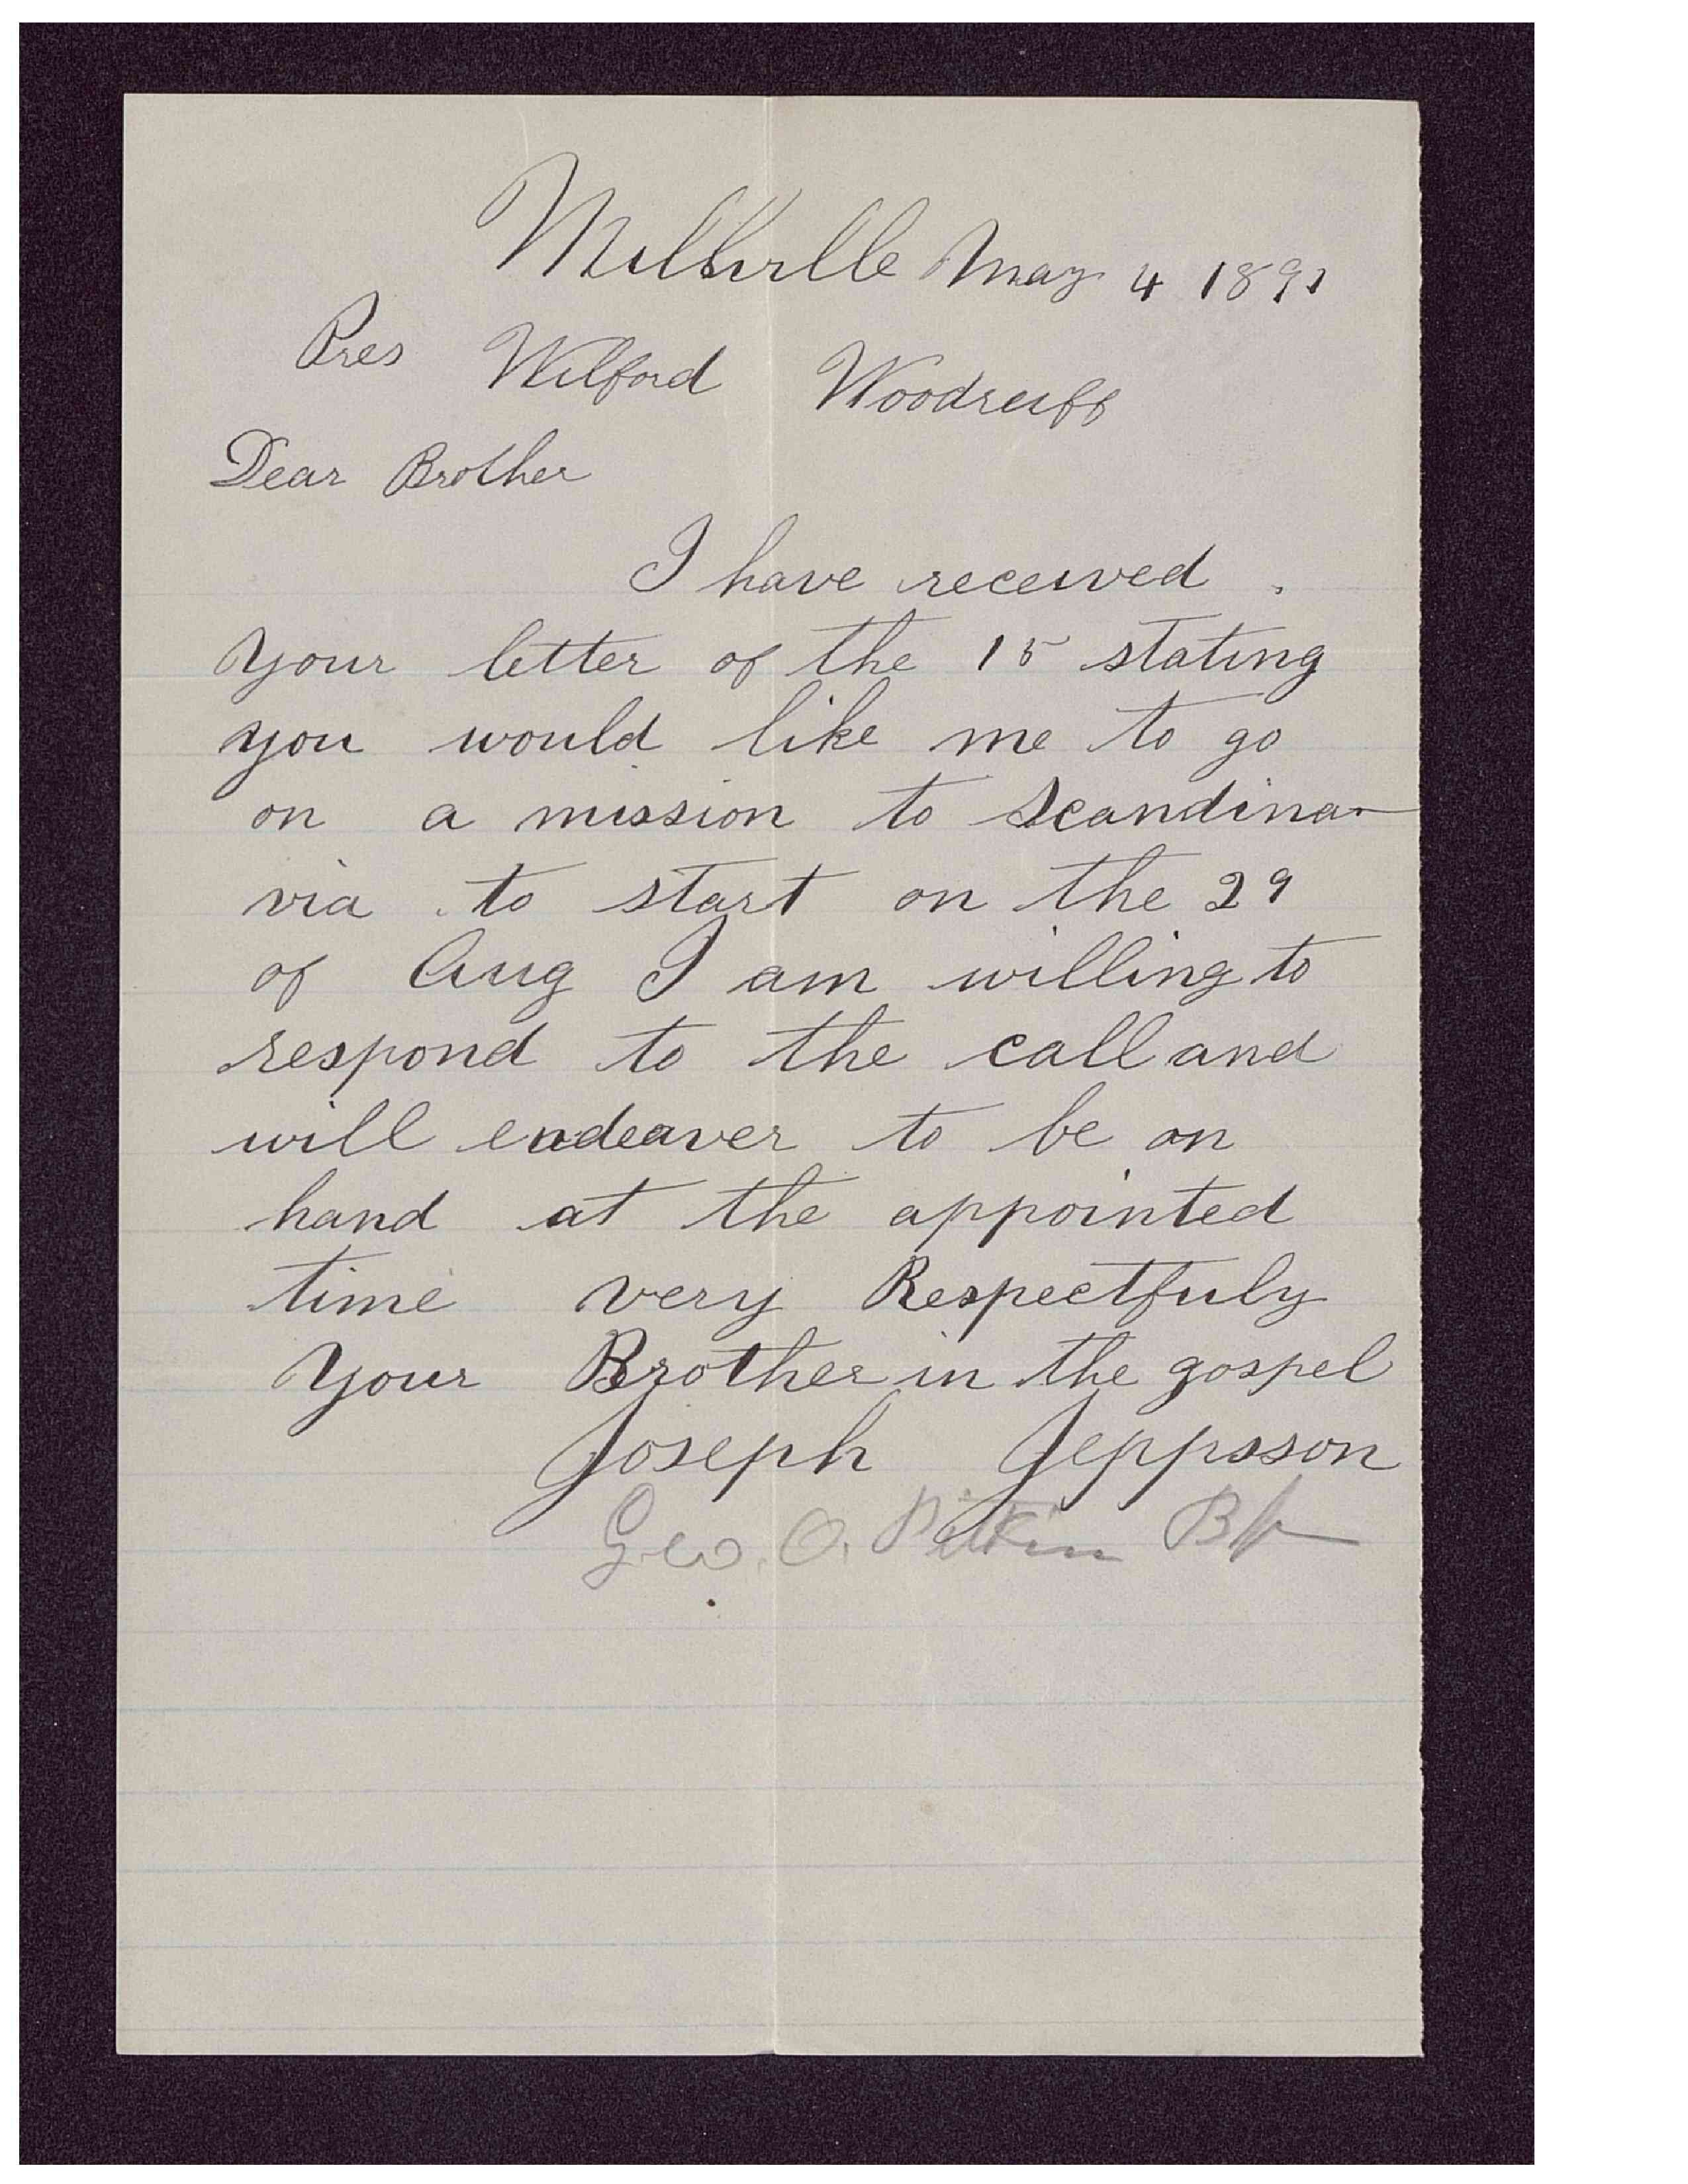 Millville May 4 1891
Pres Wilford Woodruff
Dear Brother
I have received
your letter of the 15 stating
you would like me to go
on a mission to Scandina-
via to start on the 29
of Aug I am willing to
respond to the call and
will endeaver to be on
hand at the appointed
time very Respectfuly
Your Brother in the gospel
Joseph Jeppsson
Geo. O. Pitkin Bp